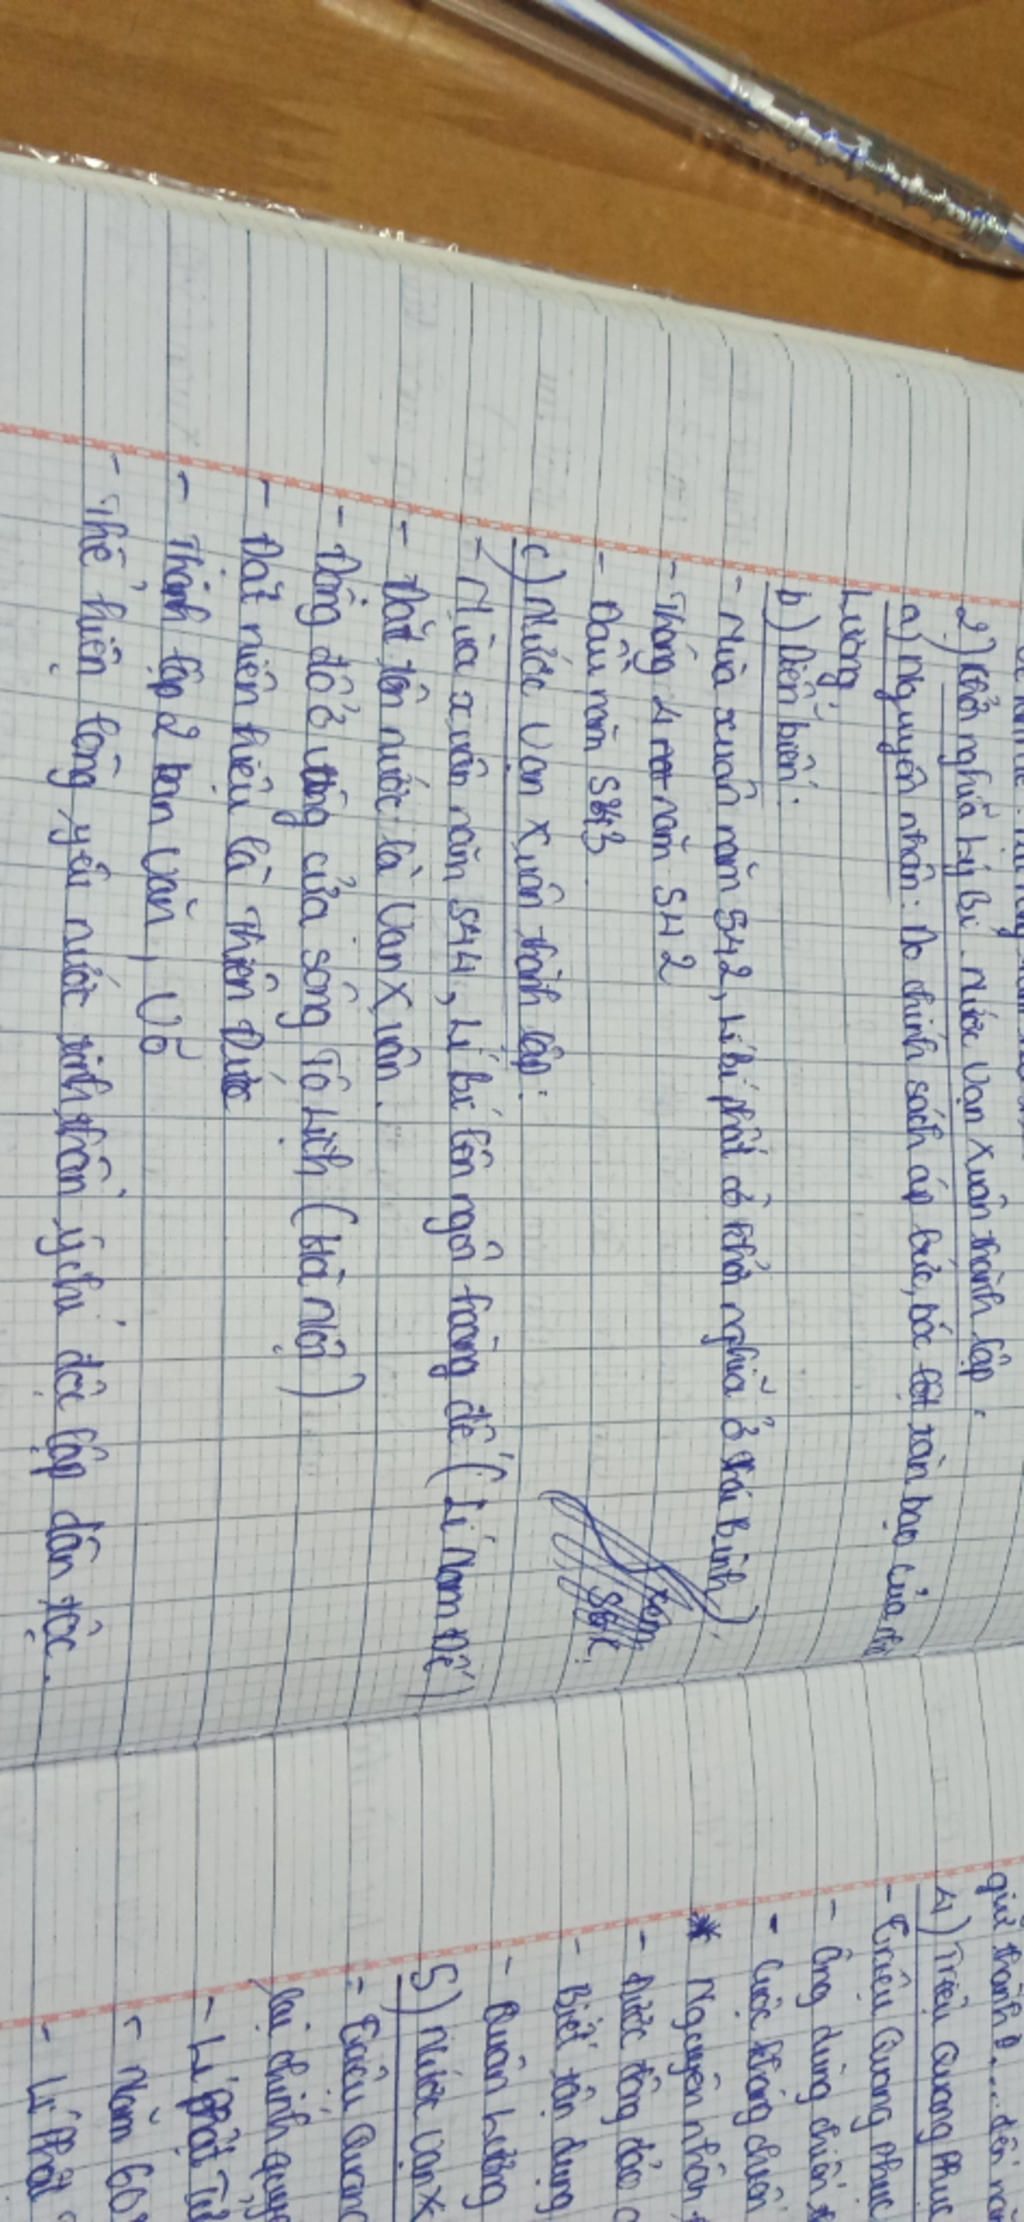 2) Khởi nghĩa Lý Bí. Nước Vạn Xuân thành lập.
a) Nguyên nhân: Do chính sách áp bức, bóc lột tàn bạo của nhà
Lương
b) Diễn biến:
- Mùa xuân năm 542, Lí Bí phất cờ khởi nghĩa ở thái Bình).
- Tháng 4 năm 542
xem
- Đầu năm 543
SGK.
c) Nước Vạn Xuân thành lập:
- Mùa xuân năm 544, Lí Bí lên ngôi hoàng đế (Lí Nam Đế)
- Đặt tên nước là Vạn Xuân.
- Đóng đô ở vùng cửa sông Tô Lịch (Hà Nội)
- Đặt niên hiệu là Thiên Đức
- Thành lập 2 ban Văn, Võ
- Thể hiện lòng yêu nước tinh thần, ý chí độc lập dân tộc.
giữ thành
4) Triệu Quang Phục
- Triệu Quang Phục
- Ông dùng chiến
- Cuộc kháng chiến
* Nguyên nhân
- Được đông đảo
- Biết tận dụng
- Quân Lương
5) Nước Vạn X
- Triệu Quang
lại chính quyề
- Lí Phật Tử
- Năm 60
- Lí Phật